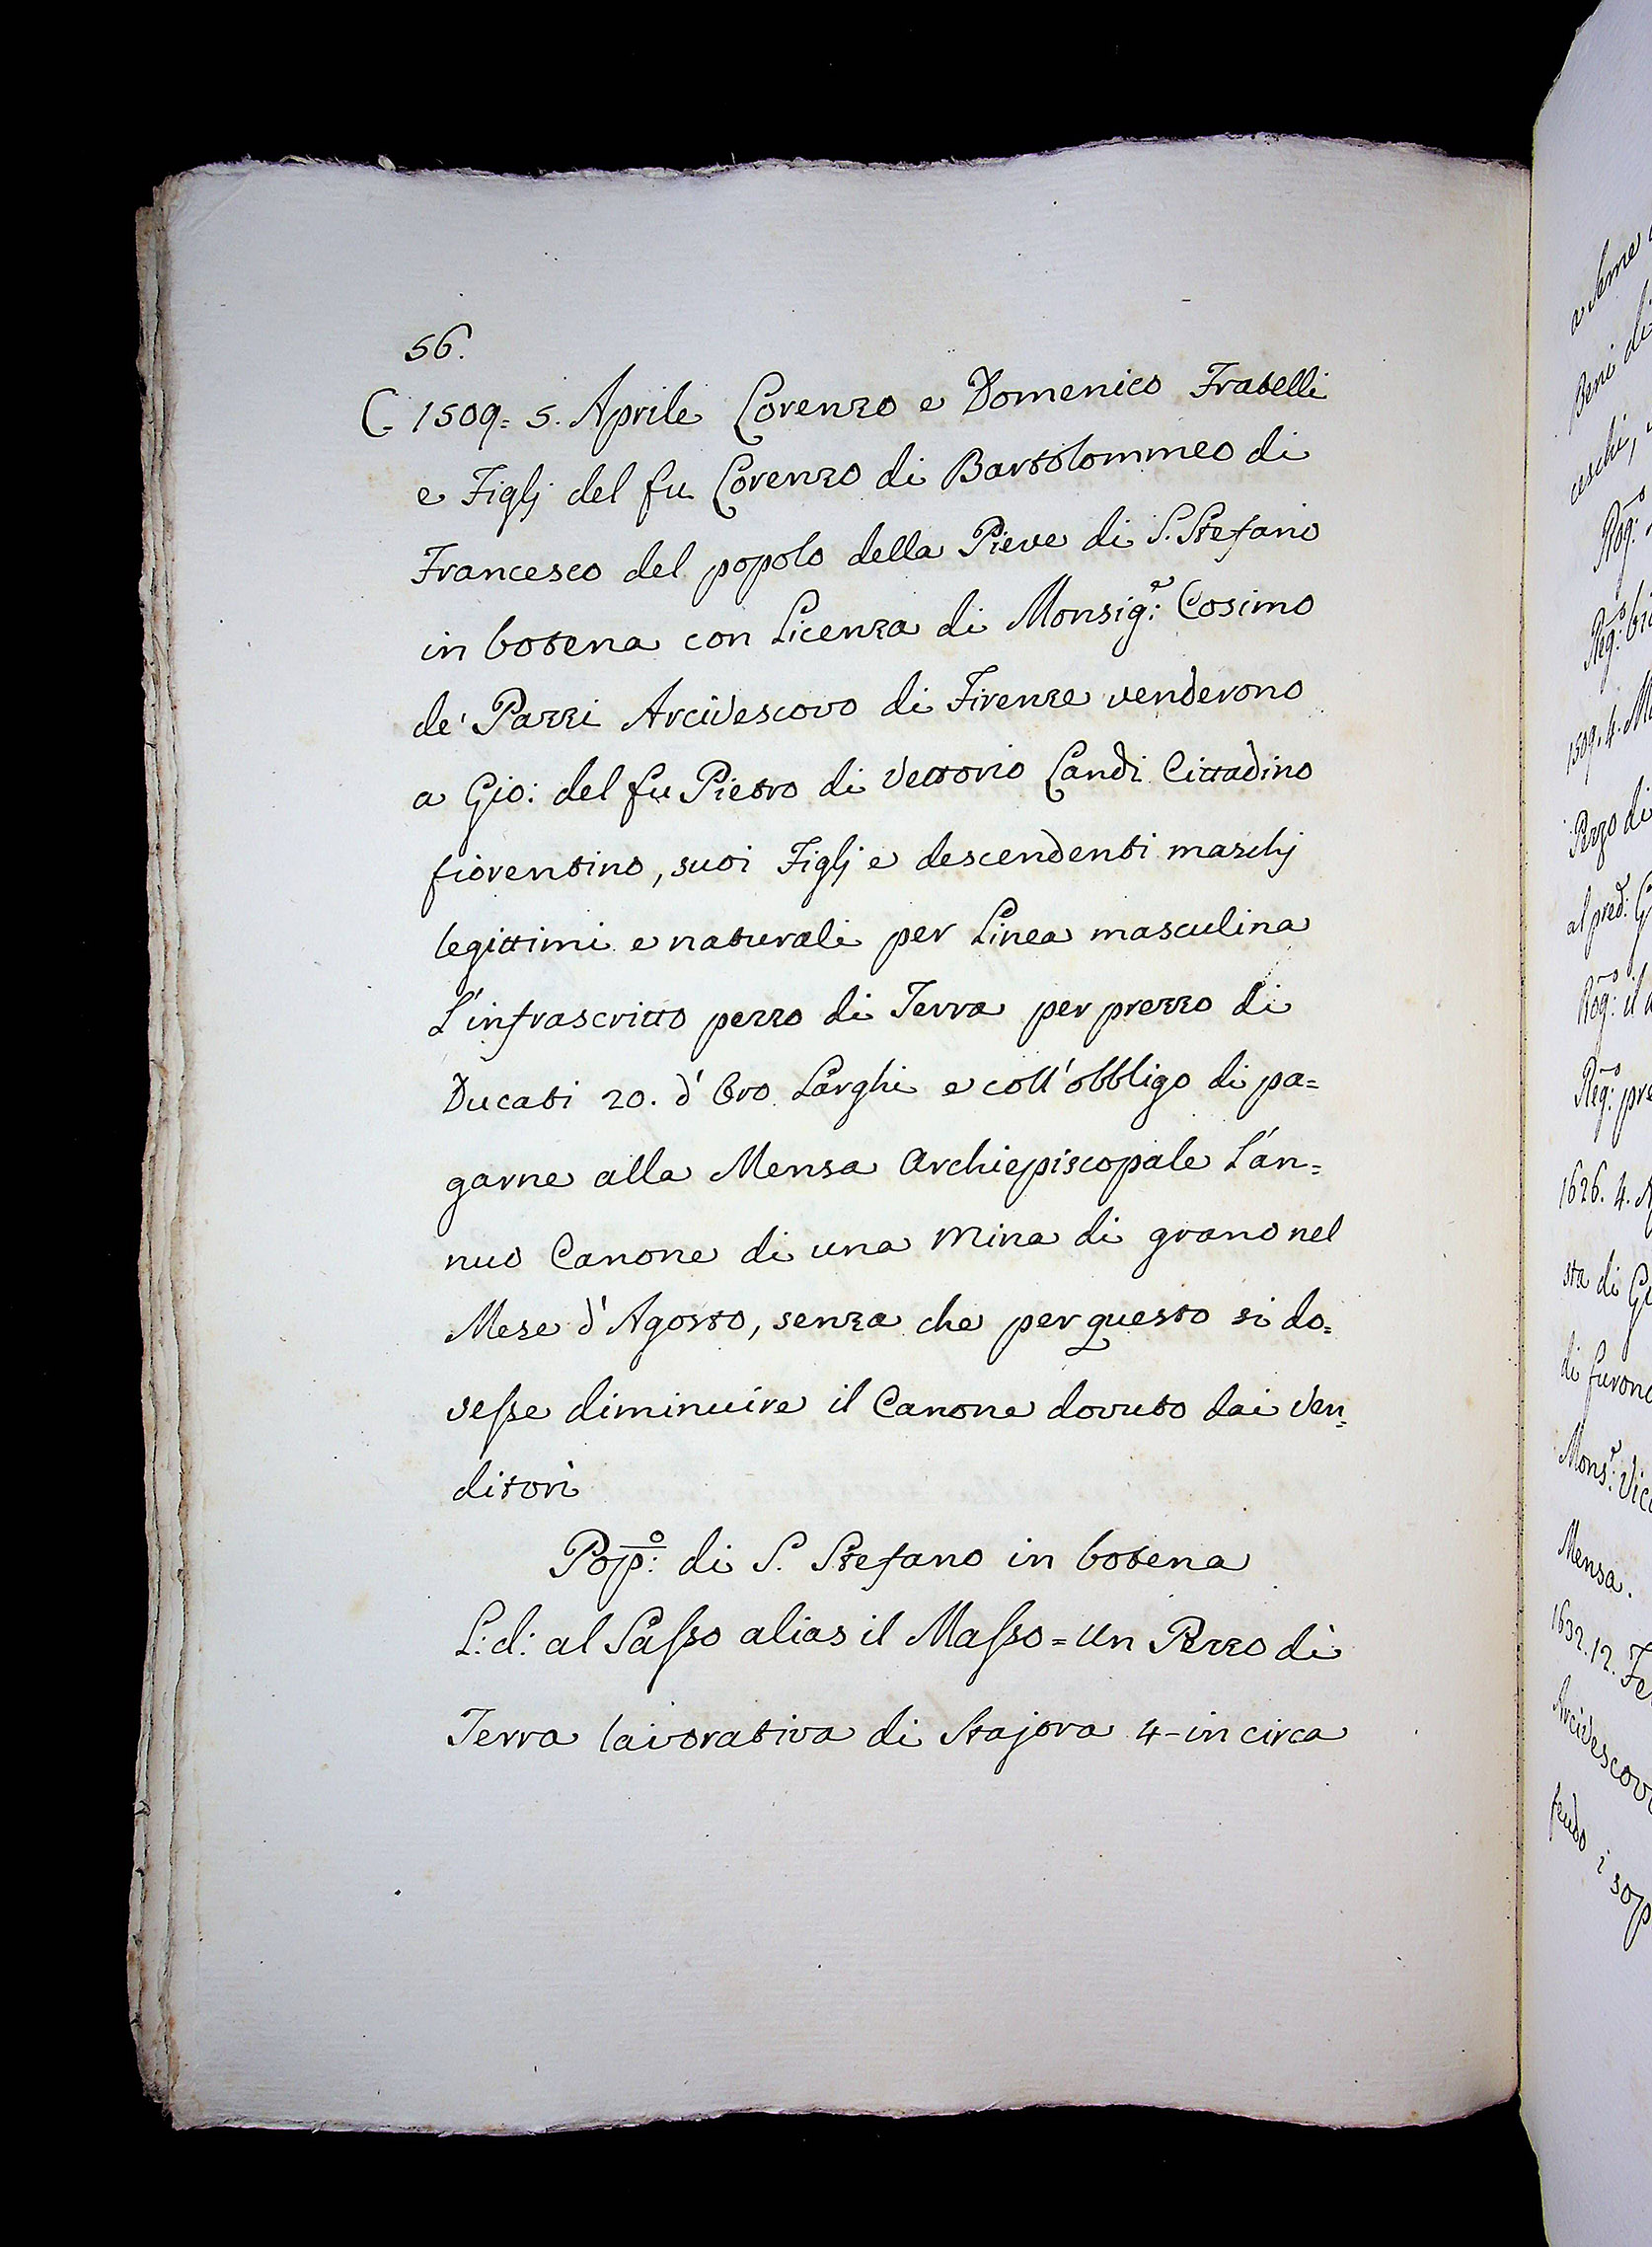 56.
C. 1509 = 5. Aprile Lorenzo e Domenico Fratelli
e Figlj del fu Lorenzo di Bartolommeo di
Francesco del popolo della Pieve di S. Stefano
in botena con Licenza di Monsig:e Cosimo
de' Pazzi Arcivescovo di Firenze venderono
a Gio: del fu Pietro di Vettorio Landi Cittadino
fiorentino, suoi Figlj e descendenti maschj
legittimi e naturali per Linea masculina
L'infrascritto pezzo di Terra per prezzo di
Ducati 20. d'Oro Larghi e coll'obbligo di pa=
garne alla Mensa Archiepiscopale L'an=
nuo Canone di una Mina di grano nel
Mese d'Agosto, senza che per questo si do=
vesse diminuire il Canone dovuto dai Ven=
ditori
Pop:o di S. Stefano in botena
L: d: al Sasso alias il Masso = Un Pezzo di
Terra lavorativa di Stajora 4 - in circa
a seme
Beni di
ceschi,
Rog:o
Reg:o
1509. 4. M
Pezzo di
al pred:
Rog:o il
Reg:o pre
1626. 4. A
sta di
di furono
Mons:e Vic
Mensa.
1632. 12. Fe
Arcivescovo
feudo i sop